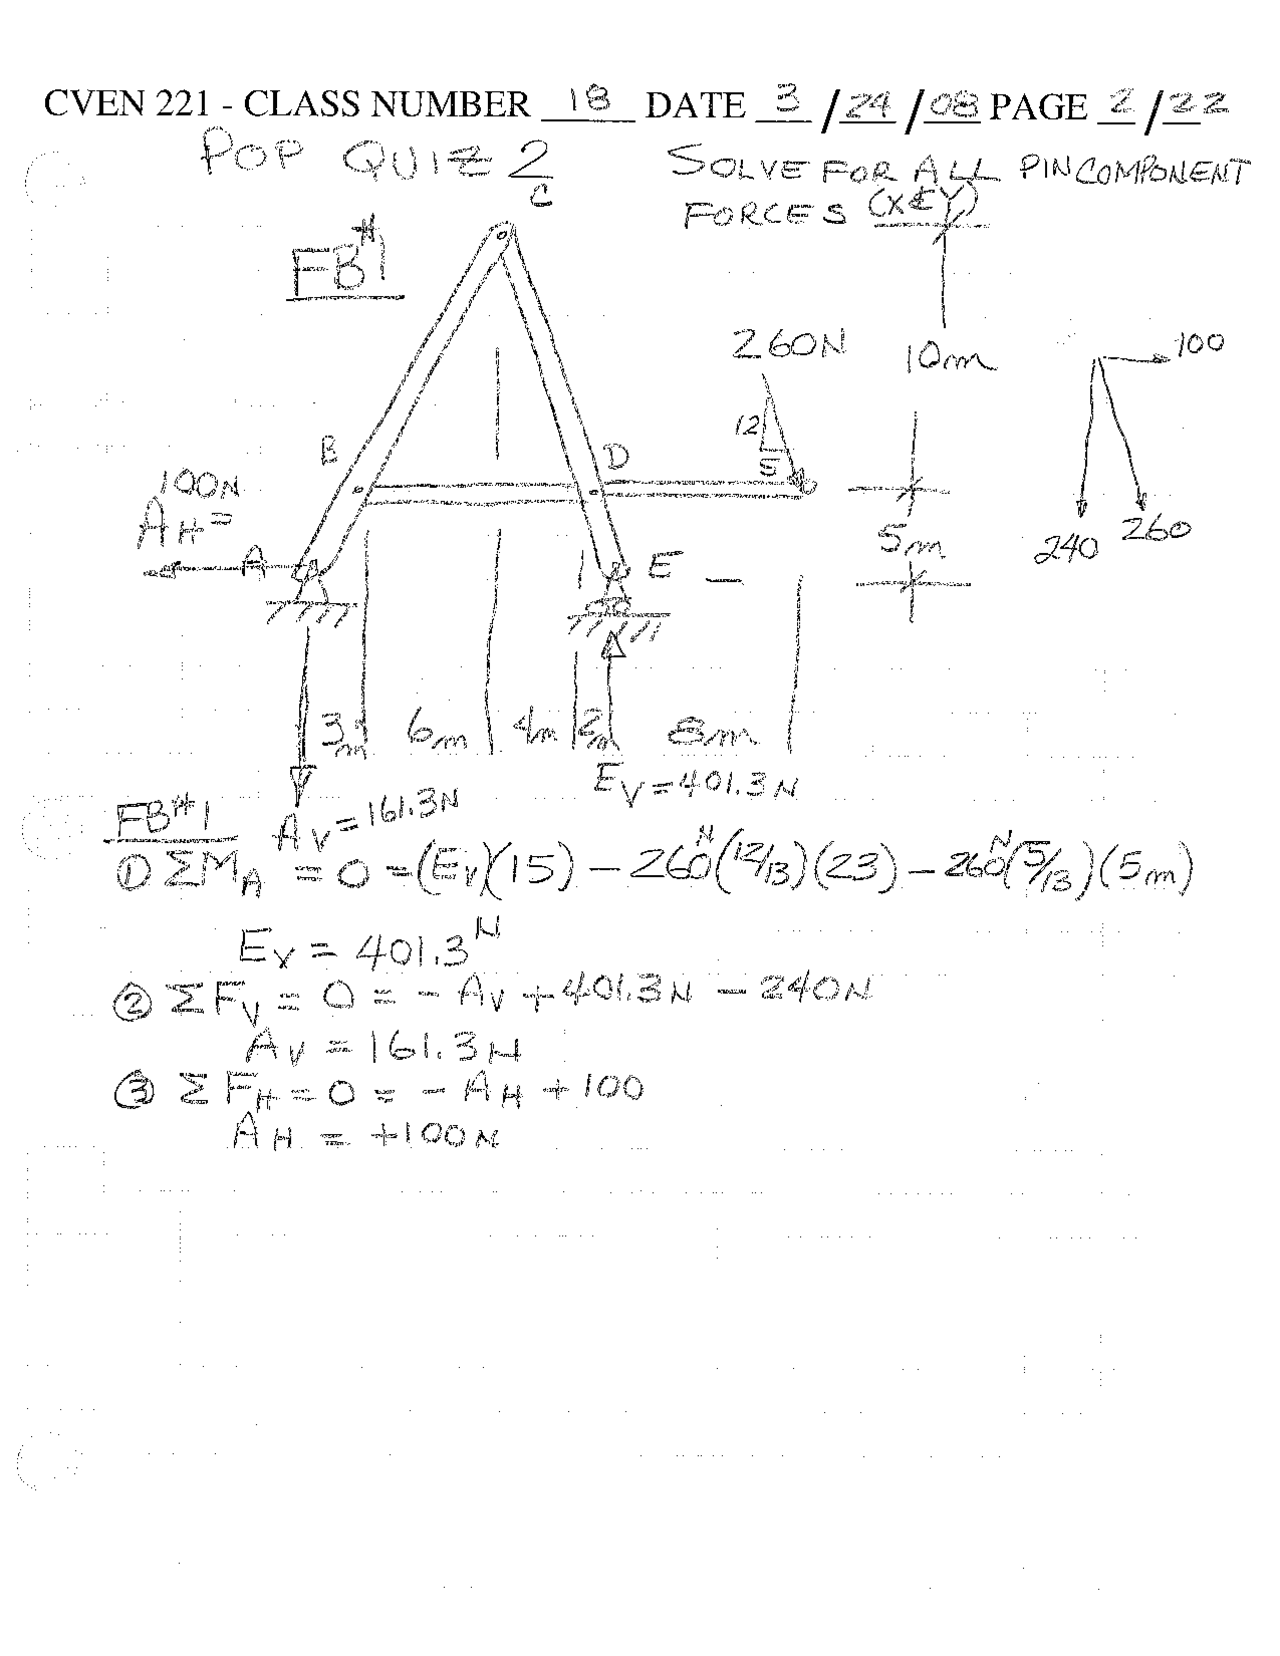 CVEN 221 - CLASS NUMBER 18 DATE 3 / 24 / 08 PAGE 2 / 22
POP QUIZ 2
SOLVE FOR ALL PIN COMPONENT
FORCES (X & Y)
C
FB#1
260N
10m
100
12
5
B
D
100N
AH =
A
E
5m
240
260
3m
6m
4m
2m
8m
EV = 401.3N
AV = 161.3N
FB#1
① ΣMA = 0 = (EV)(15) - 260N(12/13)(23) - 260N(5/13)(5m)
EV = 401.3N
② ΣFV = 0 = - AV + 401.3N - 240N
AV = 161.3N
③ ΣFH = 0 = - AH + 100
AH = +100N